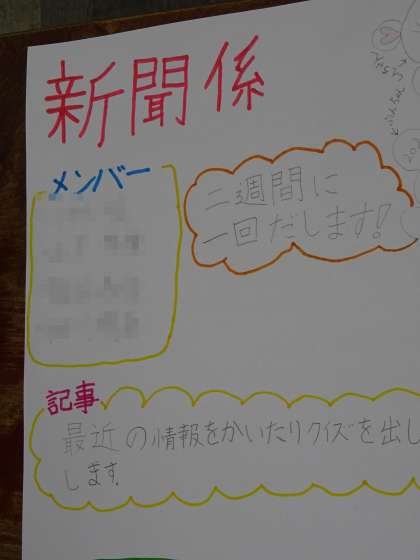 新聞係
メンバー
二週間に
一回だします!
記事
最近の情報をかいたりクイズを出し
します